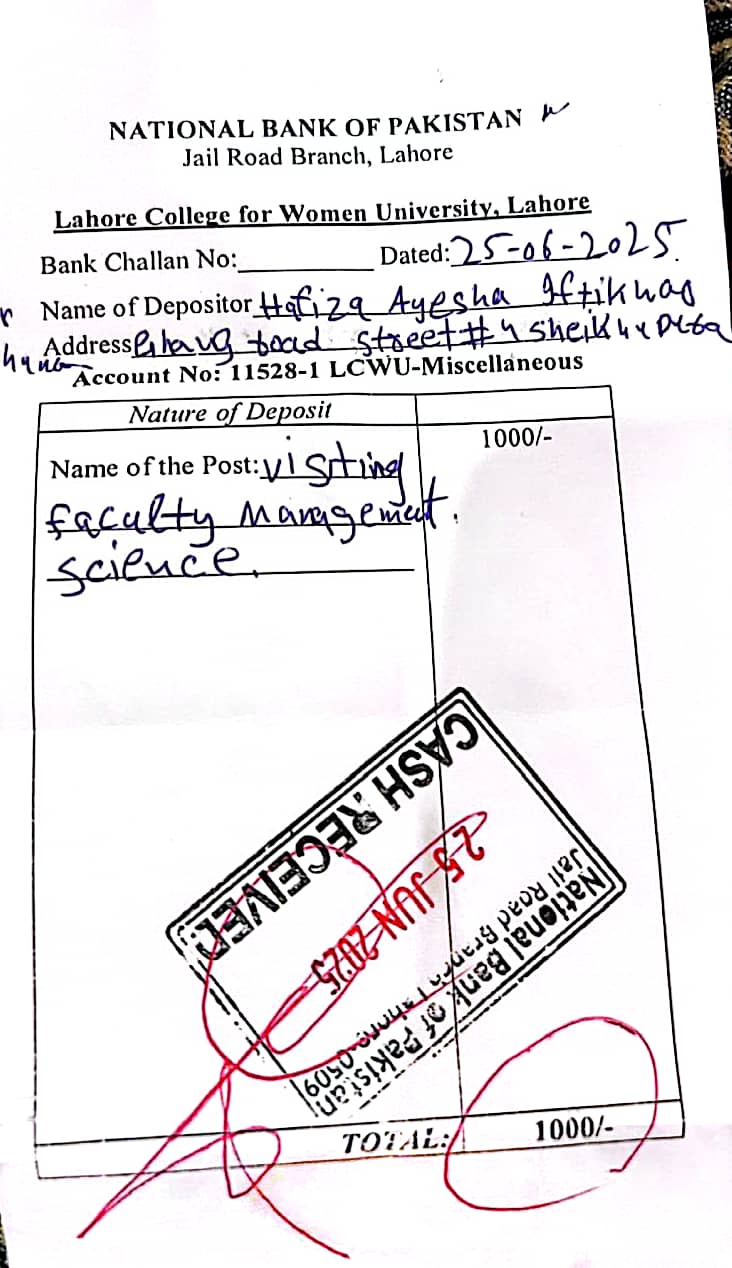 NATIONAL BANK OF PAKISTAN
Jail Road Branch, Lahore
Lahore College for Women University, Lahore
Bank Challan No:__________ Dated: 25-06-2025.
Name of Depositor Hafiza Ayesha Iftikhar
Address road street #
Account No: 11528-1 LCWU-Miscellaneous
Nature of Deposit
1000/-
Name of the Post: Visiting
faculty Management.
Science.
CASH RECEIVED
25 JUN 2025
National Bank of Pakistan
Jail Road Branch Lahore-0509
TOTAL: 1000/-